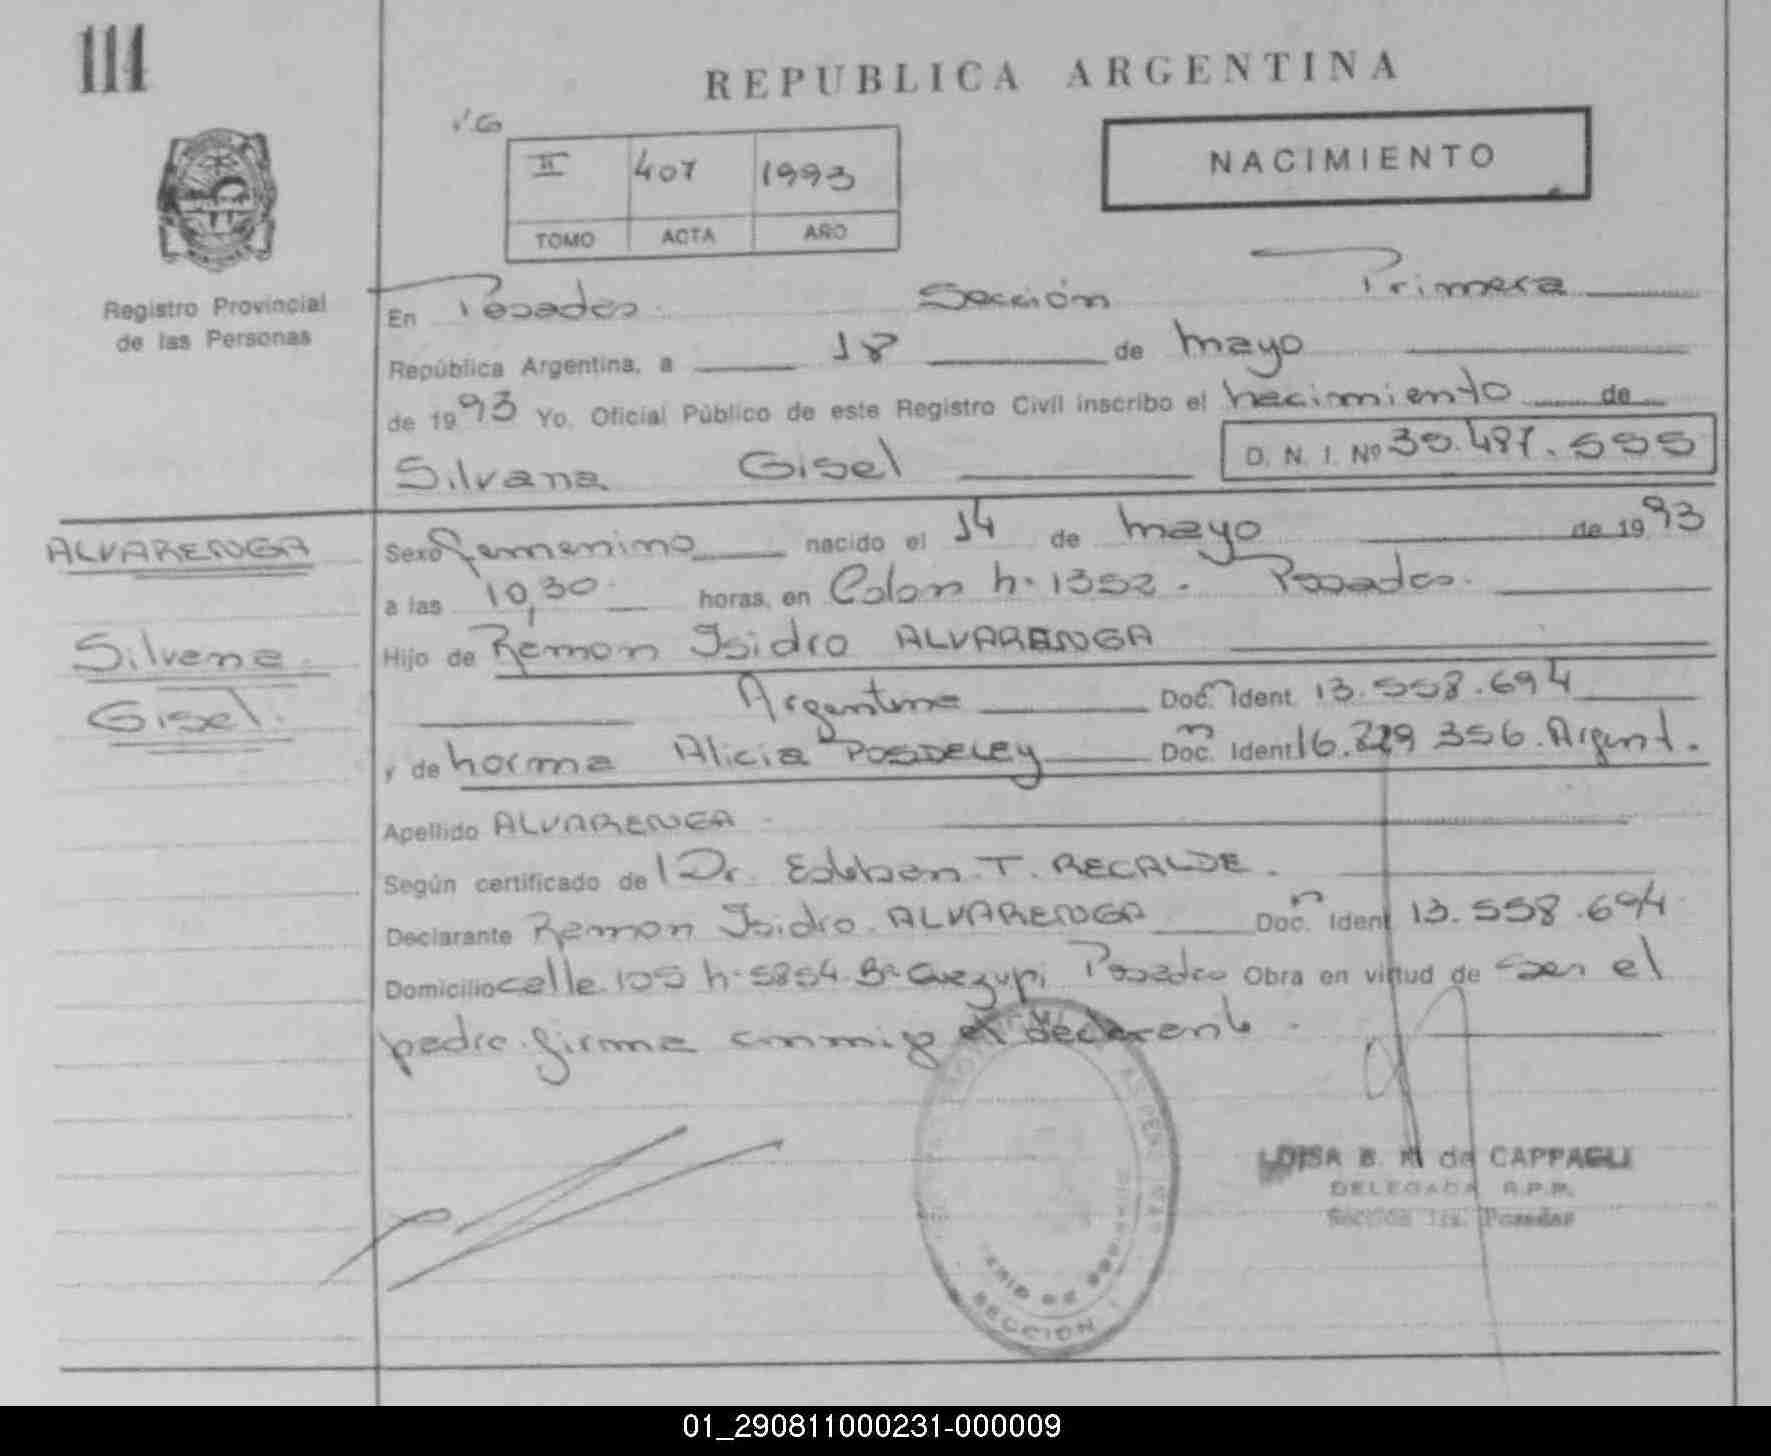 114
REPUBLICA ARGENTINA
II 407 1993
TOMO ACTA AÑO
NACIMIENTO
Registro Provincial
de las Personas
En Posadas Sección Primera
República Argentina, a 18 de mayo
de 1993 Yo, Oficial Público de este Registro Civil inscribo el nacimiento de
Silvana Gisel D. N. I. Nº
ALVARENGA
Silvana
Gisel.
Sexo femenino nacido el 14 de mayo de 1993
a las 10,30 horas, en Colon n. 1352. Posadas.
Hijo de Ramon Isidro ALVARENGA
Argentina Doc. Ident. 13.558.694
y de Norma Alicia POSDELEY Doc. Ident. 356. Argent.
Apellido ALVARENGA
Según certificado del Dr. Esteban T. RECALDE.
Declarante Ramon Isidro ALVARENGA Doc. Ident 13.558.694
Domicilio calle 105 n. 5854 Bº Posadas Obra en virtud de ser el
padre. firma conmigo el declarante.
LUISA B. M de CAPPAGLI
DELEGADA R.P.P.
Sección 1ra. Posadas
SECCION
01_290811000231-000009